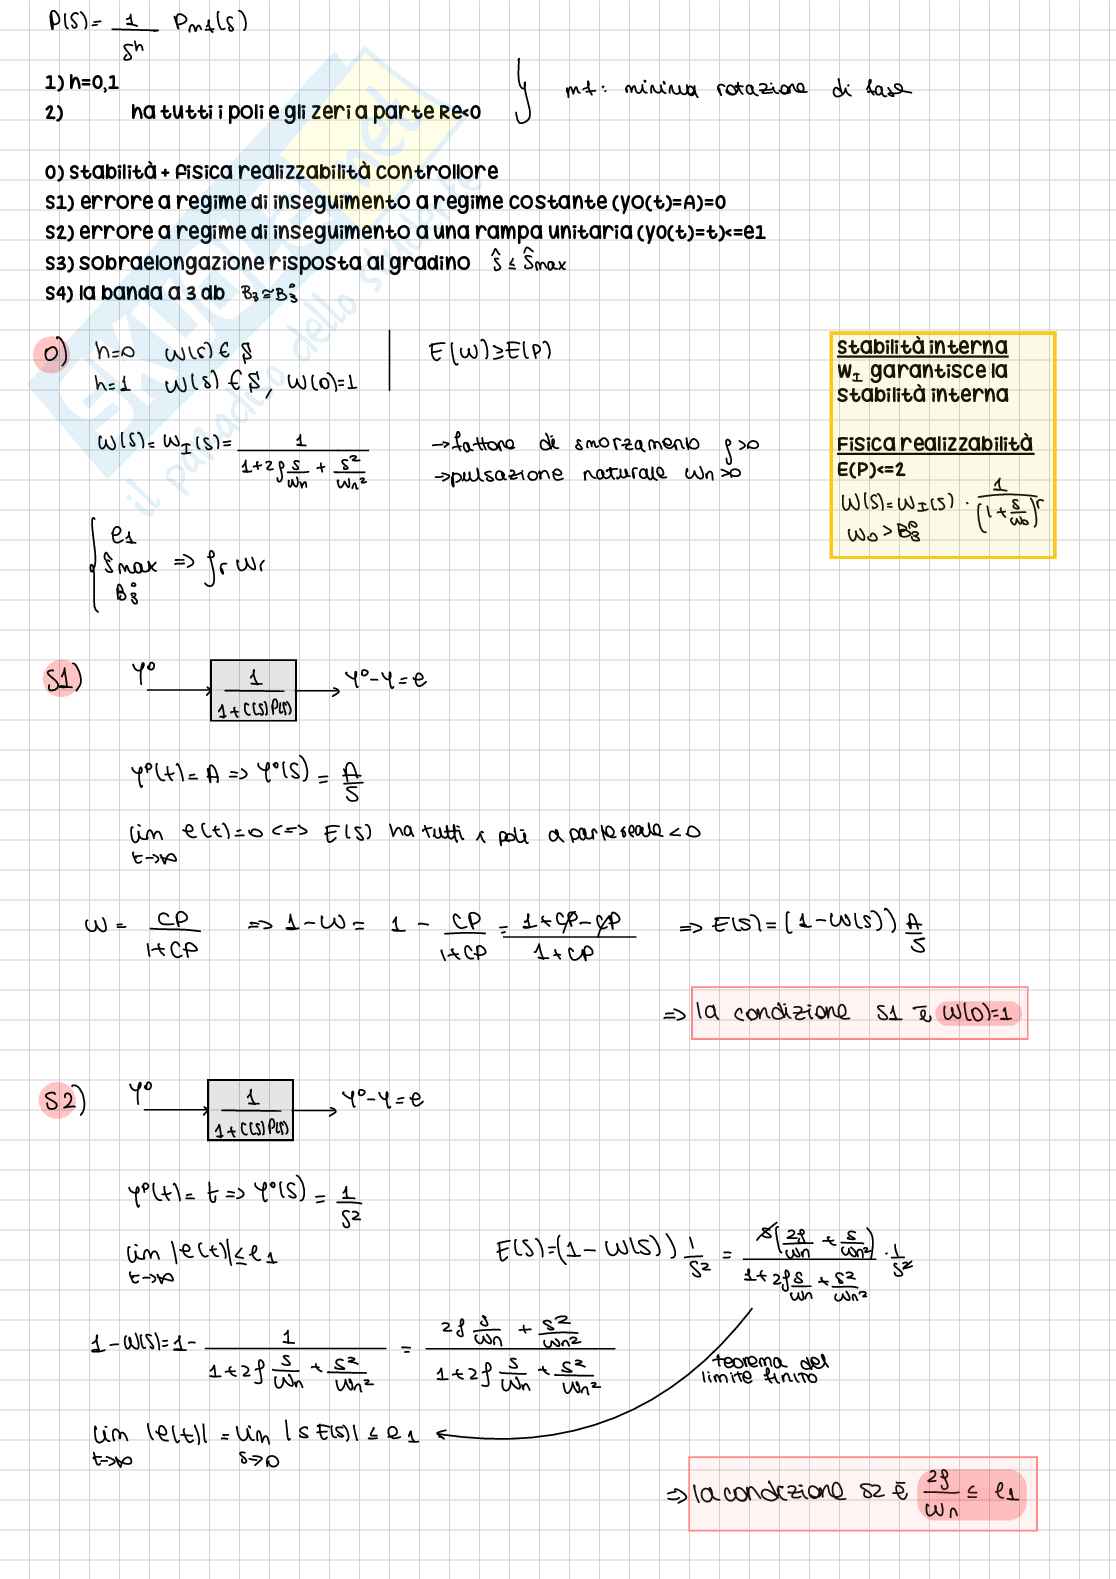 P(s)= 1/s^h P_mf(s)
1) h=0,1
2) ha tutti i poli e gli zeri a parte Re<0
mf: minima rotazione di fase
0) stabilità + fisica realizzabilità controllore
S1) errore a regime di inseguimento a regime costante (yo(t)=A)=0
S2) errore a regime di inseguimento a una rampa unitaria (yo(t)=t)<=e1
S3) sobraelongazione risposta al gradino ŝ ≤ ŝmax
S4) la banda a 3 db B3≃B3°
0) h=0 W(s) ∈ S
h=1 W(s) ∈ S, W(0)=1
E(W)≥E(P)
W(s)= W_I(s)= 1/(1+2ρ s/ωn + s²/ωn²)
→fattore di smorzamento ρ>0
→pulsazione naturale ωn>0
stabilità interna
W_I garantisce la
stabilità interna
Fisica realizzabilità
E(P)<=2
W(s)=W_I(s) · 1/(1+s/ω0)^r
ω0 > B3°
e1
ŝmax => ρr ωr
B3°
S1) Y° 1/(1+C(s)P(s)) Y°-Y=e
Y°(t)= A => Y°(s) = A/s
lim t→∞ e(t)=0 <=> E(s) ha tutti i poli a parte reale <0
W = CP/(1+CP) => 1-W = 1 - CP/(1+CP) = (1+CP-CP)/(1+CP) => E(s)=(1-W(s)) A/s
=> la condizione S1 è W(0)=1
S2) Y° 1/(1+C(s)P(s)) Y°-Y=e
Y°(t)= t => Y°(s) = 1/s²
lim t→∞ |e(t)|≤e1
E(s)=(1-W(s)) 1/s² = s(2ρ/ωn + s/ωn²)/(1+2ρ s/ωn + s²/ωn²) · 1/s²
1-W(s)=1- 1/(1+2ρ s/ωn + s²/ωn²) = (2ρ s/ωn + s²/ωn²)/(1+2ρ s/ωn + s²/ωn²)
teorema del
limite finito
lim t→∞ |e(t)| = lim s→0 |s E(s)| ≤ e1
=> la condizione S2 è 2ρ/ωn ≤ e1